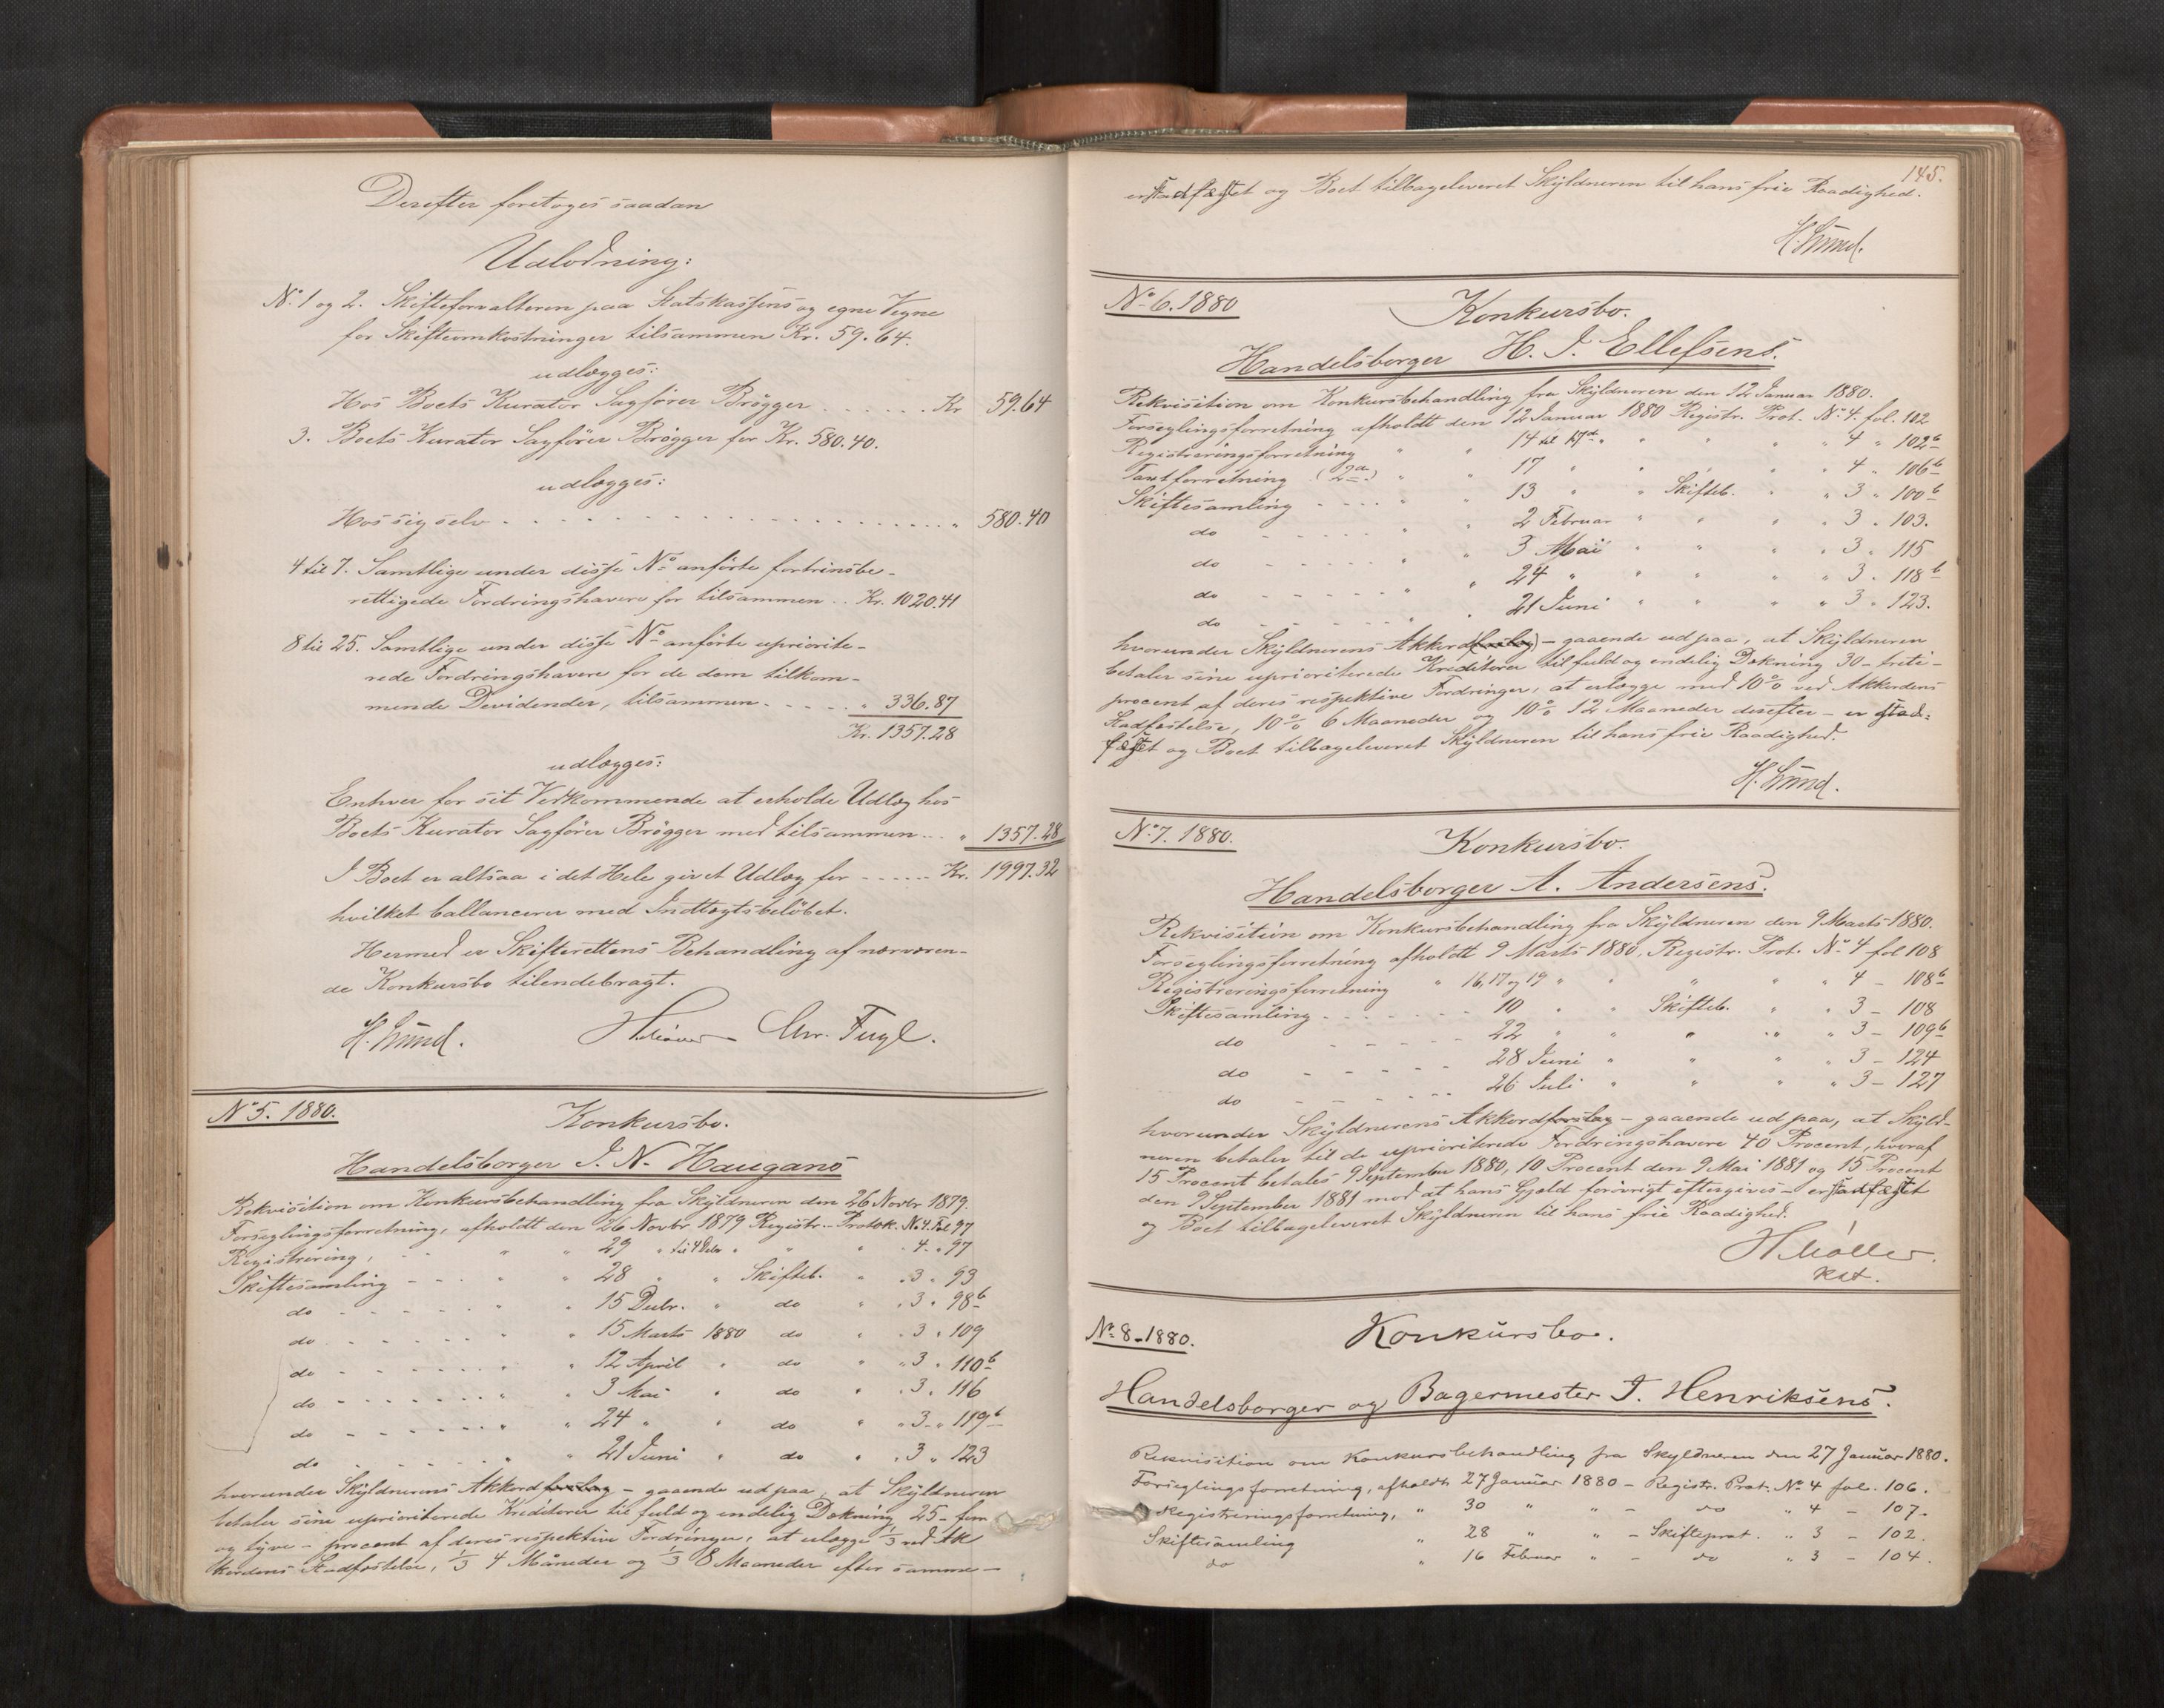 Derefter foretoges saadan
Udlodning:
No. 1 og 2. Skifteforvalteren paa Statskassens og egne Vegne
for Skifteomkostninger tilsammen Kr. 59.64.
udlægges:
Hos Boets Kurator Sagfører Brøgger . . . . . . Kr 59.64
3. Boets Kurator Sagfører Brøgger for Kr. 580.40.
udlægges:
Hos sig selv . . . . . . . . . . . . " 580.40
4 til 7. Samtlige under disse No anførte fortrinsbe-
rettigede Fordringshavere for tilsammen . . Kr. 1020.41
8 til 25. Samtlige under disse No anførte upriorite-
rede Fordringshavere for de dem tilkom-
mende Dividender, tilsammen . . . . . " 336.87
Kr. 1357.28
udlægges:
Enhver for sit Vedkommende at erholde Udlæg hos
Boets Kurator Sagfører Brøgger med tilsammen . . " 1357.28
I Boet er altsaa i det Hele givet Udlæg for . . . . . Kr. 1997.32
hvilket ballancerer med Indtægtsbeløbet.
Hermed er Skifterettens Behandling af nærværen-
de Konkursbo tilendebragt.
H. Lund. Chr. Fugl.
No 5. 1880.
Konkursbo.
Handelsborger I. N. Haugans
Rekvisition om Konkursbehandling fra Skyldneren den 26 Novbr 1879.
Forseglingsforretning, afholdt den 26 Novbr 1879 Registr. Protok. No. 4. Fol 97
Registrering, " " 29 " til 4 Debr " " " 4 " 97
Skiftesamling - - - " " 28 " " Skifteb. " " 3 " 93
do - - - - - " " 15 Decbr. " do " " 3 " 98b
do - - - - - " " 15 Marts 1880 do " " 3 " 109
do - - - - - " " 12 April " do " " 3 " 110b
do - - - - - " " 3 Mai " do " " 3 " 116
do - - - - - " " 24 " " do " " 3 " 119b
do - - - - - " " 21 Juni " do " " 3 " 123
hvorunder Skyldnerens Akkordforslag - gaaende ud paa, at Skyldneren
betaler sine uprioriterede Kreditorer til fuld og endelig Dækning 25 - fem
og tyve - procent af deres respektive Fordringer, at erlægge 1/3 ved Ak
kordens Stadfæstelse, 1/3 4 Måneder og 1/3 8 Maaneder efter samme -
145.
er stadfæstet og Boet tilbageleveret Skyldneren til hans frie Raadighed.
H. Lund.
No 6. 1880
Konkursbo.
Handelsborger H. I. Ellefsens.
Rekvisition om Konkursbehandling fra Skyldneren den 12 Januar 1880.
Forseglingsforretning afholdt den 12 Januar 1880 Registr. Prot. No. 4. fol. 102
Registreringsforretning " " 14 til 17de " " " " " 4 " 102b
Taxtforretning (2de) " " 17 " " " " " 4 " 106b
Skiftesamling - - - - " " 13 " " Skifteb. " " 3 " 100b
do - - - - - " " 2 Februar " " " " 3 " 103.
do - - - - - " " 3 Mai " " " " 3 " 115
do - - - - - " " 24 " " " " " 3 " 118b
do - - - - - " " 21 Juni " " " " 3 " 123.
hvorunder Skyldnerens Akkord(forslag) - gaaende ud paa, at Skyldneren
betaler sine uprioriterede Kreditorer til fuld og endelig Dækning 30 - treti -
procent af deres respektive Fordringer, at erlægge med 10% ved Akkordens
Stadfæstelse, 10% 6 Maaneder og 10% 12 Maaneder derefter - er stad=
fæstet og Boet tilbageleveret Skyldneren til hans frie Raadighed.
H. Lund.
No 7. 1880.
Konkursbo.
Handelsborger A. Andersens.
Rekvisition om Konkursbehandling fra Skyldneren den 9 Marts 1880.
Forseglingsforretning afholdt 9 Marts 1880, Registr. Prot. No. 4 fol 108
Registreringsforretning " 16, 17 og 19 " " " " " 4 - 108b
Skiftesamling - - - - - 10 " " Skifteb. " " 3 - 108
do - - - - - 22 " " " " " 3 - 109b
do - - - - - 28 Juni " " " " 3 - 124
do - - - - - 26 Juli " " " " 3 - 127
hvorunder Skyldnerens Akkordforslag - gaaende ud paa, at Skyld-
neren betaler til de uprioriterede Fordringshavere 40 Procent, hvoraf
15 Procent betales 9 September 1880, 10 Procent den 9 Mai 1881 og 15 Procent
den 9 September 1881 mod at hans Gjæld forøvrigt eftergives - er stadfæstet
og Boet tilbageleveret Skyldneren til hans frie Raadighed.
H Møller
kst.
No. 8 - 1880.
Konkursbo.
Handelsborger og Bagermester I. Henriksens.
Rekvisition om Konkursbehandling fra Skyldneren den 27 Januar 1880.
Forseglingsforretning, afholdt 27 Januar 1880 - Registr. Prot. No. 4 fol. 106.
Registreringsforretning, " 30 " " - do " 4 - 107.
Skiftesamling " 28 " " - Skifteprot. " 3 - 102.
do " 16 Februar " - do " 3 - 104.